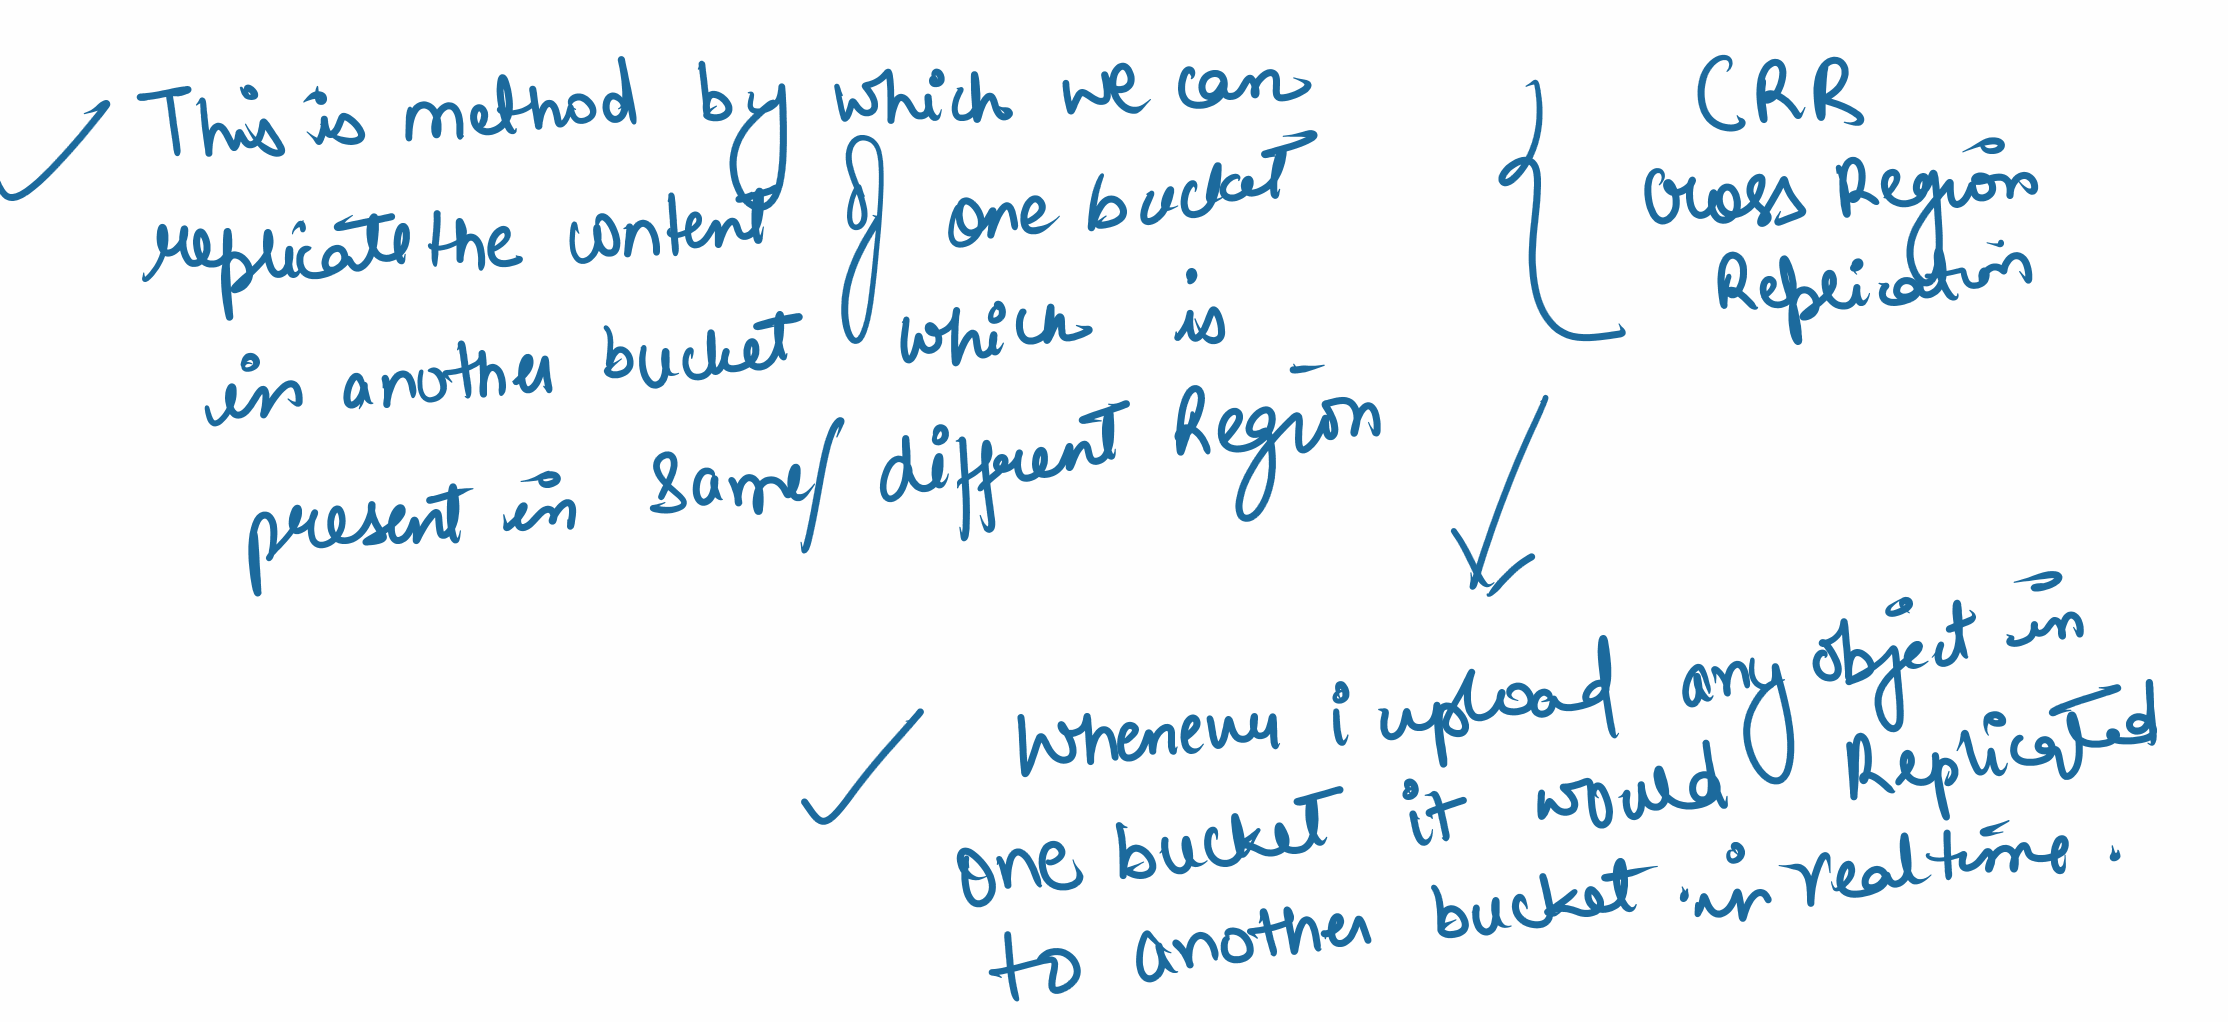 This is method by which we can
replicate the content of one bucket
in another bucket which is
present in same/different Region
CRR
Cross Region
Replication
Whenever i upload any object in
one bucket it would Replicated
to another bucket in real time.